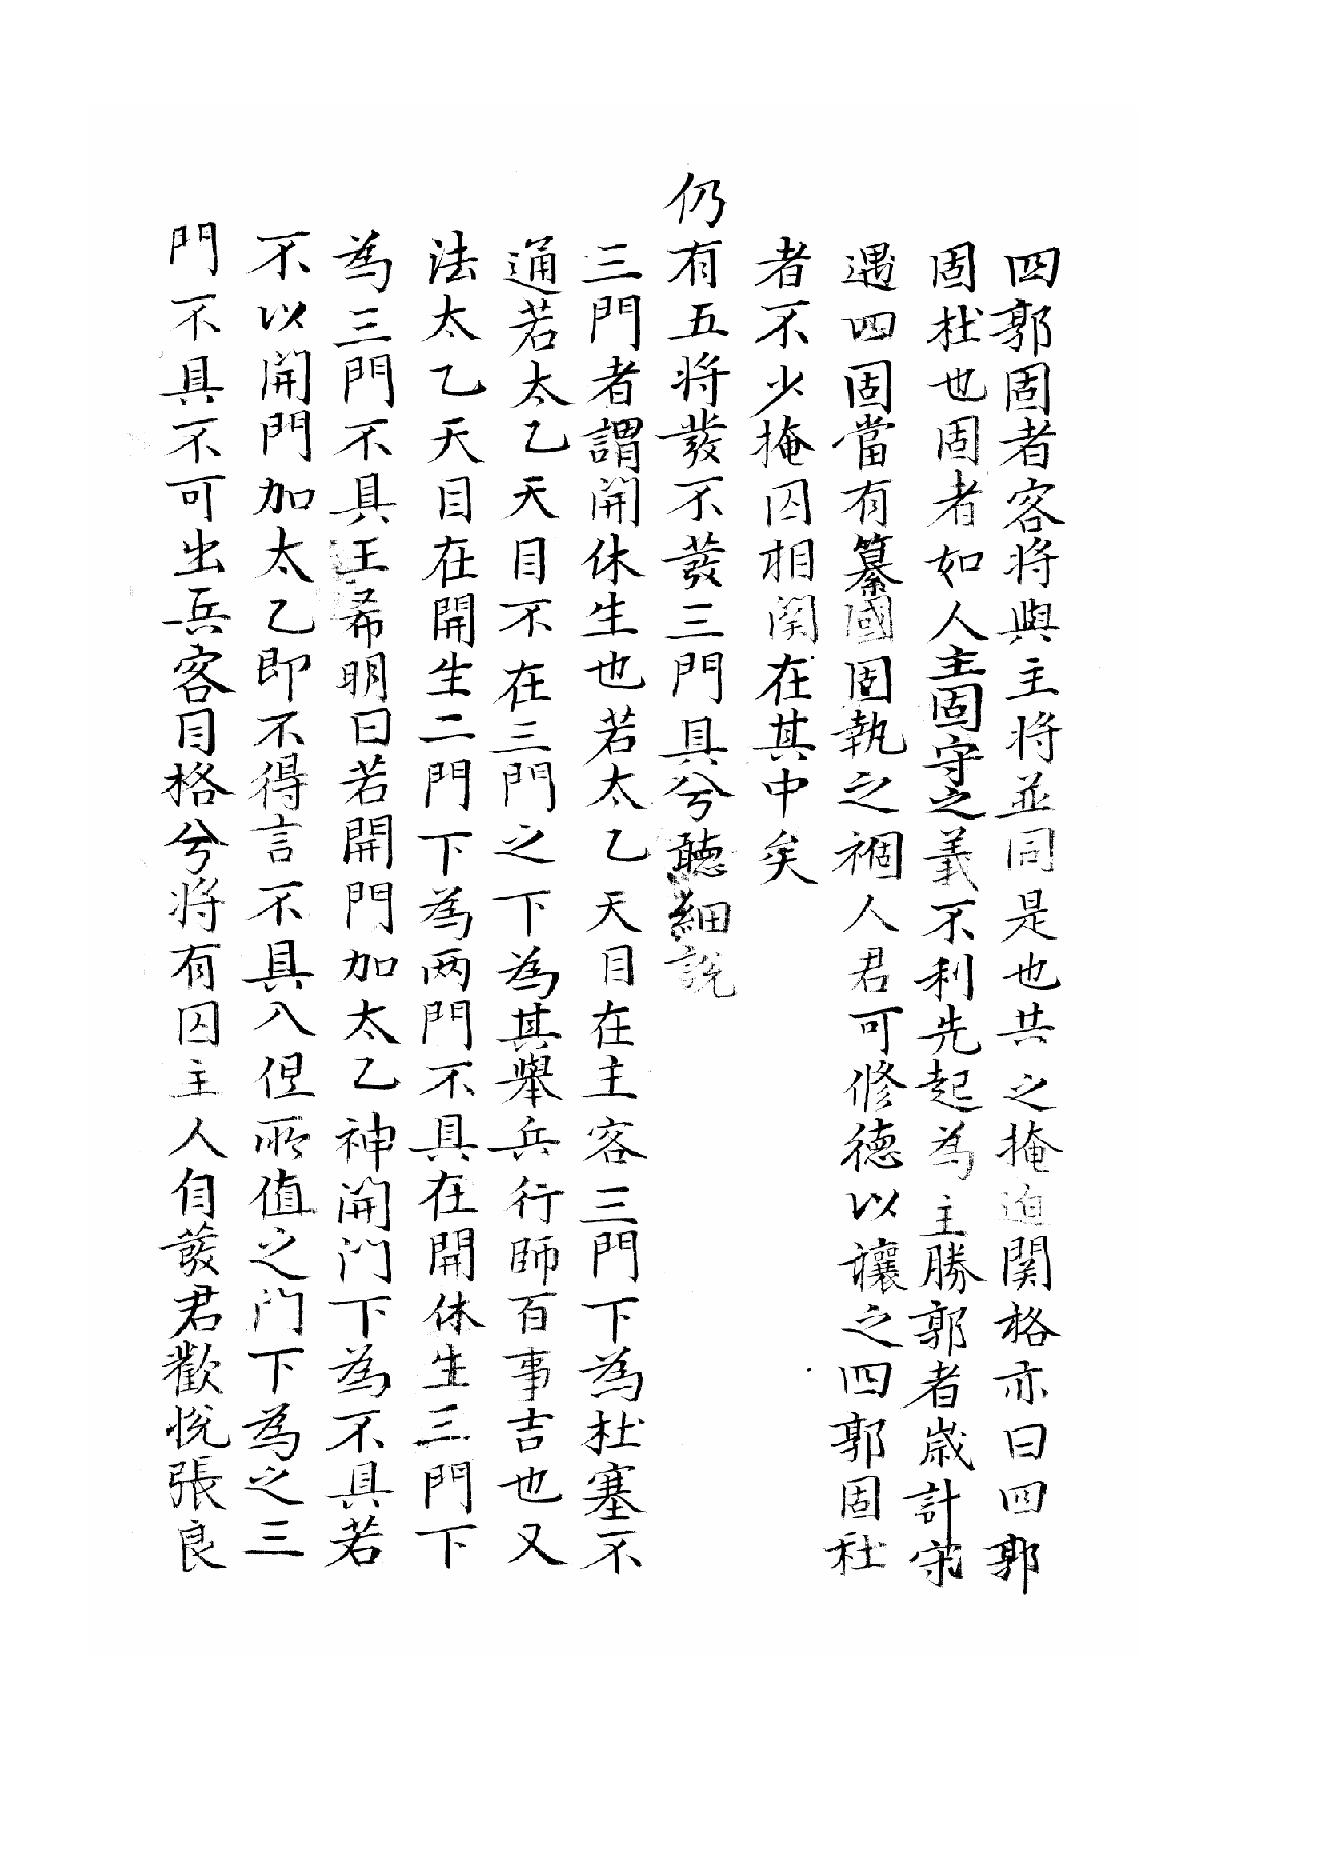 四郭固者客将與主将並同是也共之掩迫関格亦曰四郭
固杜也固者如人主固守之義不利先起為主勝郭者歲計
遇四固當有篡國固執之禍人君可修德以禳之四郭固社
者不少掩囚相関在其中矣
仍有五将發不發三門具兮聽細說
三門者謂開休生也若太乙天目在主客三門下為杜塞不
通若太乙天目不在三門之下為其舉兵行師百事吉也又
法太乙天目在開生二門下為两門不具在開休生三門下
為三門不具王希明曰若開門加太乙神開门下為不具若
不以開門加太乙即不得言不具八但所值之门下為之三
門不具不可出兵客目格兮将有囚主人自發君歡悅張良